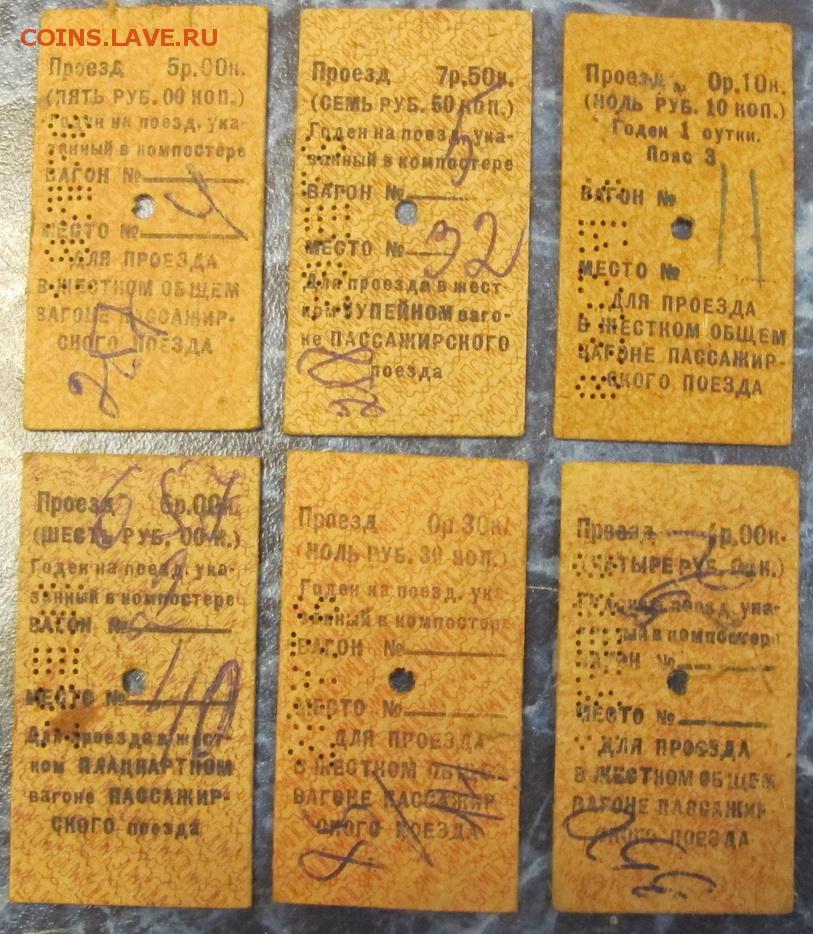 COINS.LAVE.RU
Проезд 5р.00к.
(ПЯТЬ РУБ. 00 КОП.)
Годен на поезд, ука-
занный в компостере
ВАГОН № 4
МЕСТО №
ДЛЯ ПРОЕЗДА
В ЖЕСТНОМ ОБЩЕМ
ВАГОНЕ ПАССАЖИР-
СКОГО ПОЕЗДА
Проезд 7р.50к.
(СЕМЬ РУБ. 50 КОП.)
Годен на поезд, ука-
занный в компостере
ВАГОН № 5
МЕСТО № 32
Для проезда в жест-
ном КУПЕЙНОМ ваго-
не ПАССАЖИРСКОГО
поезда
Проезд 0р.10к.
(НОЛЬ РУБ. 10 КОП.)
Годен 1 сутки.
Пояс 3
ВАГОН № 11
МЕСТО №
ДЛЯ ПРОЕЗДА
В ЖЕСТНОМ ОБЩЕМ
ВАГОНЕ ПАССАЖИР-
СКОГО ПОЕЗДА
Проезд 6р.00к.
(ШЕСТЬ РУБ. 00 К.)
Годен на поезд, ука-
занный в компостере
ВАГОН №
МЕСТО № 40
Для проезда в жест-
ном ПЛАЦКАРТНОМ
вагоне ПАССАЖИР-
СКОГО поезда
Проезд 0р.30к.
(НОЛЬ РУБ. 30 КОП.)
Годен на поезд, ука-
занный в компостере
ВАГОН №
МЕСТО №
ДЛЯ ПРОЕЗДА
В ЖЕСТНОМ ОБЩЕМ
ВАГОНЕ ПАССАЖИР-
СКОГО ПОЕЗДА
Проезд 4р.00к.
(ЧЕТЫРЕ РУБ. 00 К.)
Годен на поезд, ука-
занный в компостере
ВАГОН №
МЕСТО №
ДЛЯ ПРОЕЗДА
В ЖЕСТНОМ ОБЩЕМ
ВАГОНЕ ПАССАЖИР-
СКОГО ПОЕЗДА